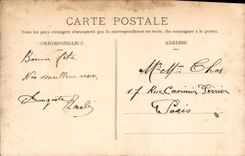 CARTE POSTALE
Tous les pays étrangers n'acceptent pas la correspondance au recto, (se renseigner à la poste).
CORRESPONDANCE
ADRESSE
Bonne fête
Nos meilleurs vœux
Auguste
Mr Mme Chos
17 Rue Casimir Périer
Paris